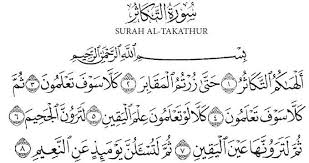 سُورَةُ التَّكَاثُرِ
SURAH AL-TAKATHUR
بِسْمِ اللَّهِ الرَّحْمَٰنِ الرَّحِيمِ
أَلْهَاكُمُ التَّكَاثُرُ ۝١ حَتَّىٰ زُرْتُمُ الْمَقَابِرَ ۝٢ كَلَّا سَوْفَ تَعْلَمُونَ ۝٣ ثُمَّ
كَلَّا سَوْفَ تَعْلَمُونَ ۝٤ كَلَّا لَوْ تَعْلَمُونَ عِلْمَ الْيَقِينِ ۝٥ لَتَرَوُنَّ الْجَحِيمَ ۝٦
ثُمَّ لَتَرَوُنَّهَا عَيْنَ الْيَقِينِ ۝٧ ثُمَّ لَتُسْأَلُنَّ يَوْمَئِذٍ عَنِ النَّعِيمِ ۝٨